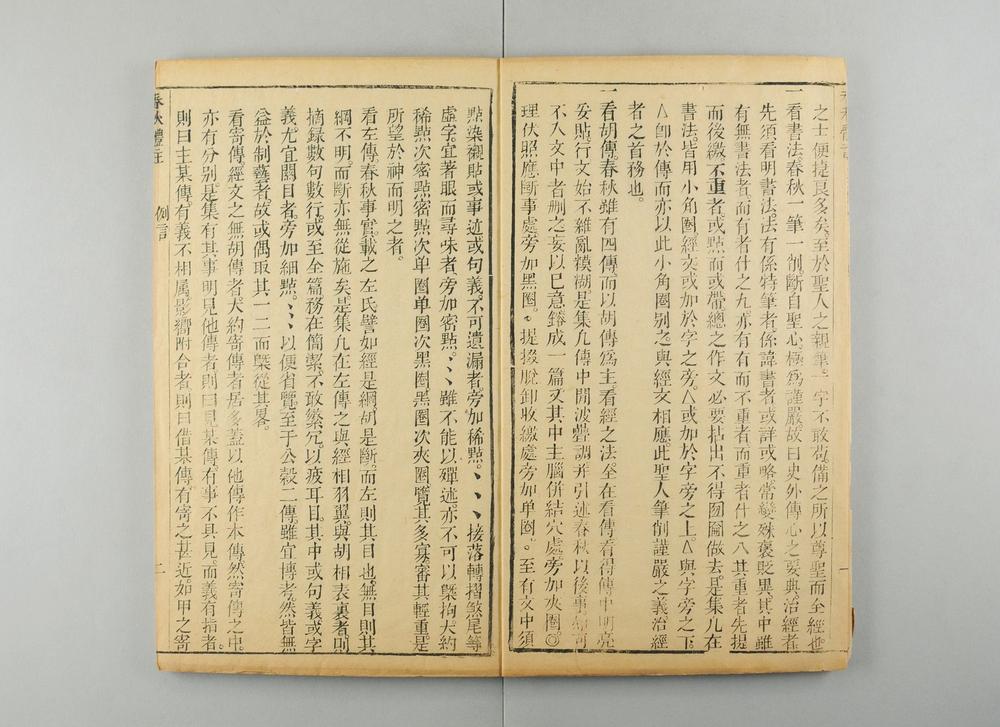 之士便捷良多矣至於聖人之親筆一字不敢苟備之所以尊聖而全經也
一看書法春秋一筆一削斷自聖心極爲謹嚴故曰史外傳心之要典治經者
先須看明書法法有係特筆者係諱書者或詳或略常變殊褒貶異其中雖
有無書法者而有者什之九亦有有而不重者而重者什之八其重者先提
而後繳不重者或點而或帶總之作文必要拈出不得囫圇做去是集凡在
書法皆用小角圈經文或加於字之旁△或加於字旁之上△與字旁之下
△卽於傳而亦以此小角圈别之與經文相應此聖人筆削謹嚴之義治經
者之首務也
一看胡傳春秋雖有四傳而以胡傳爲主看經之法全在看傳看得傳中明亮
妥貼行文始不雜亂糢糊是集凡傳中閒波聲調并引述春秋以後事 可
不入文中者刪之妄以已意鎔成一篇又其中主腦倂結穴處旁加夾圈◎
理伏照應斷事處旁加黑圈提掇脫卸收繳處旁加单圈。至有文中須
點染襯貼或事迹或句義不可遺漏者旁加稀點、、、接落轉摺煞尾等
虛字宜著眼而尋味者旁加密點、、、雖不能以殫述亦不可以槩拘大約
稀點次密點密點次单圈单圈次黑圈黑圈次夾圈覽其多寡審其輕重是
所望於神而明之者
看左傳春秋事實載之左氏譬如經是綱胡是斷而左則其目也無目則其
綱不明而斷亦無從施矣是集凡在左傳之與經相羽翼與胡相表裏者則
摘録數句數行或至全篇務在簡潔不敢繁冗以疲耳目其中或句義或字
義尤宜閱目者旁加細點、、、以便省覽至于公穀二傳雖宜博考然皆無
益於制藝者故或偶取其一二而槩從其畧
看寄傳經文之無胡傳者大約寄傳者居多蓋以他傳作本傳然寄傳之中
亦有分别是集有其事明見他傳者則曰見某傳有事不具見而義有指者
則曰主某傳有義不相屬影響附合者則曰借某傳有寄之甚近如甲之寄
春秋體註 例言 二